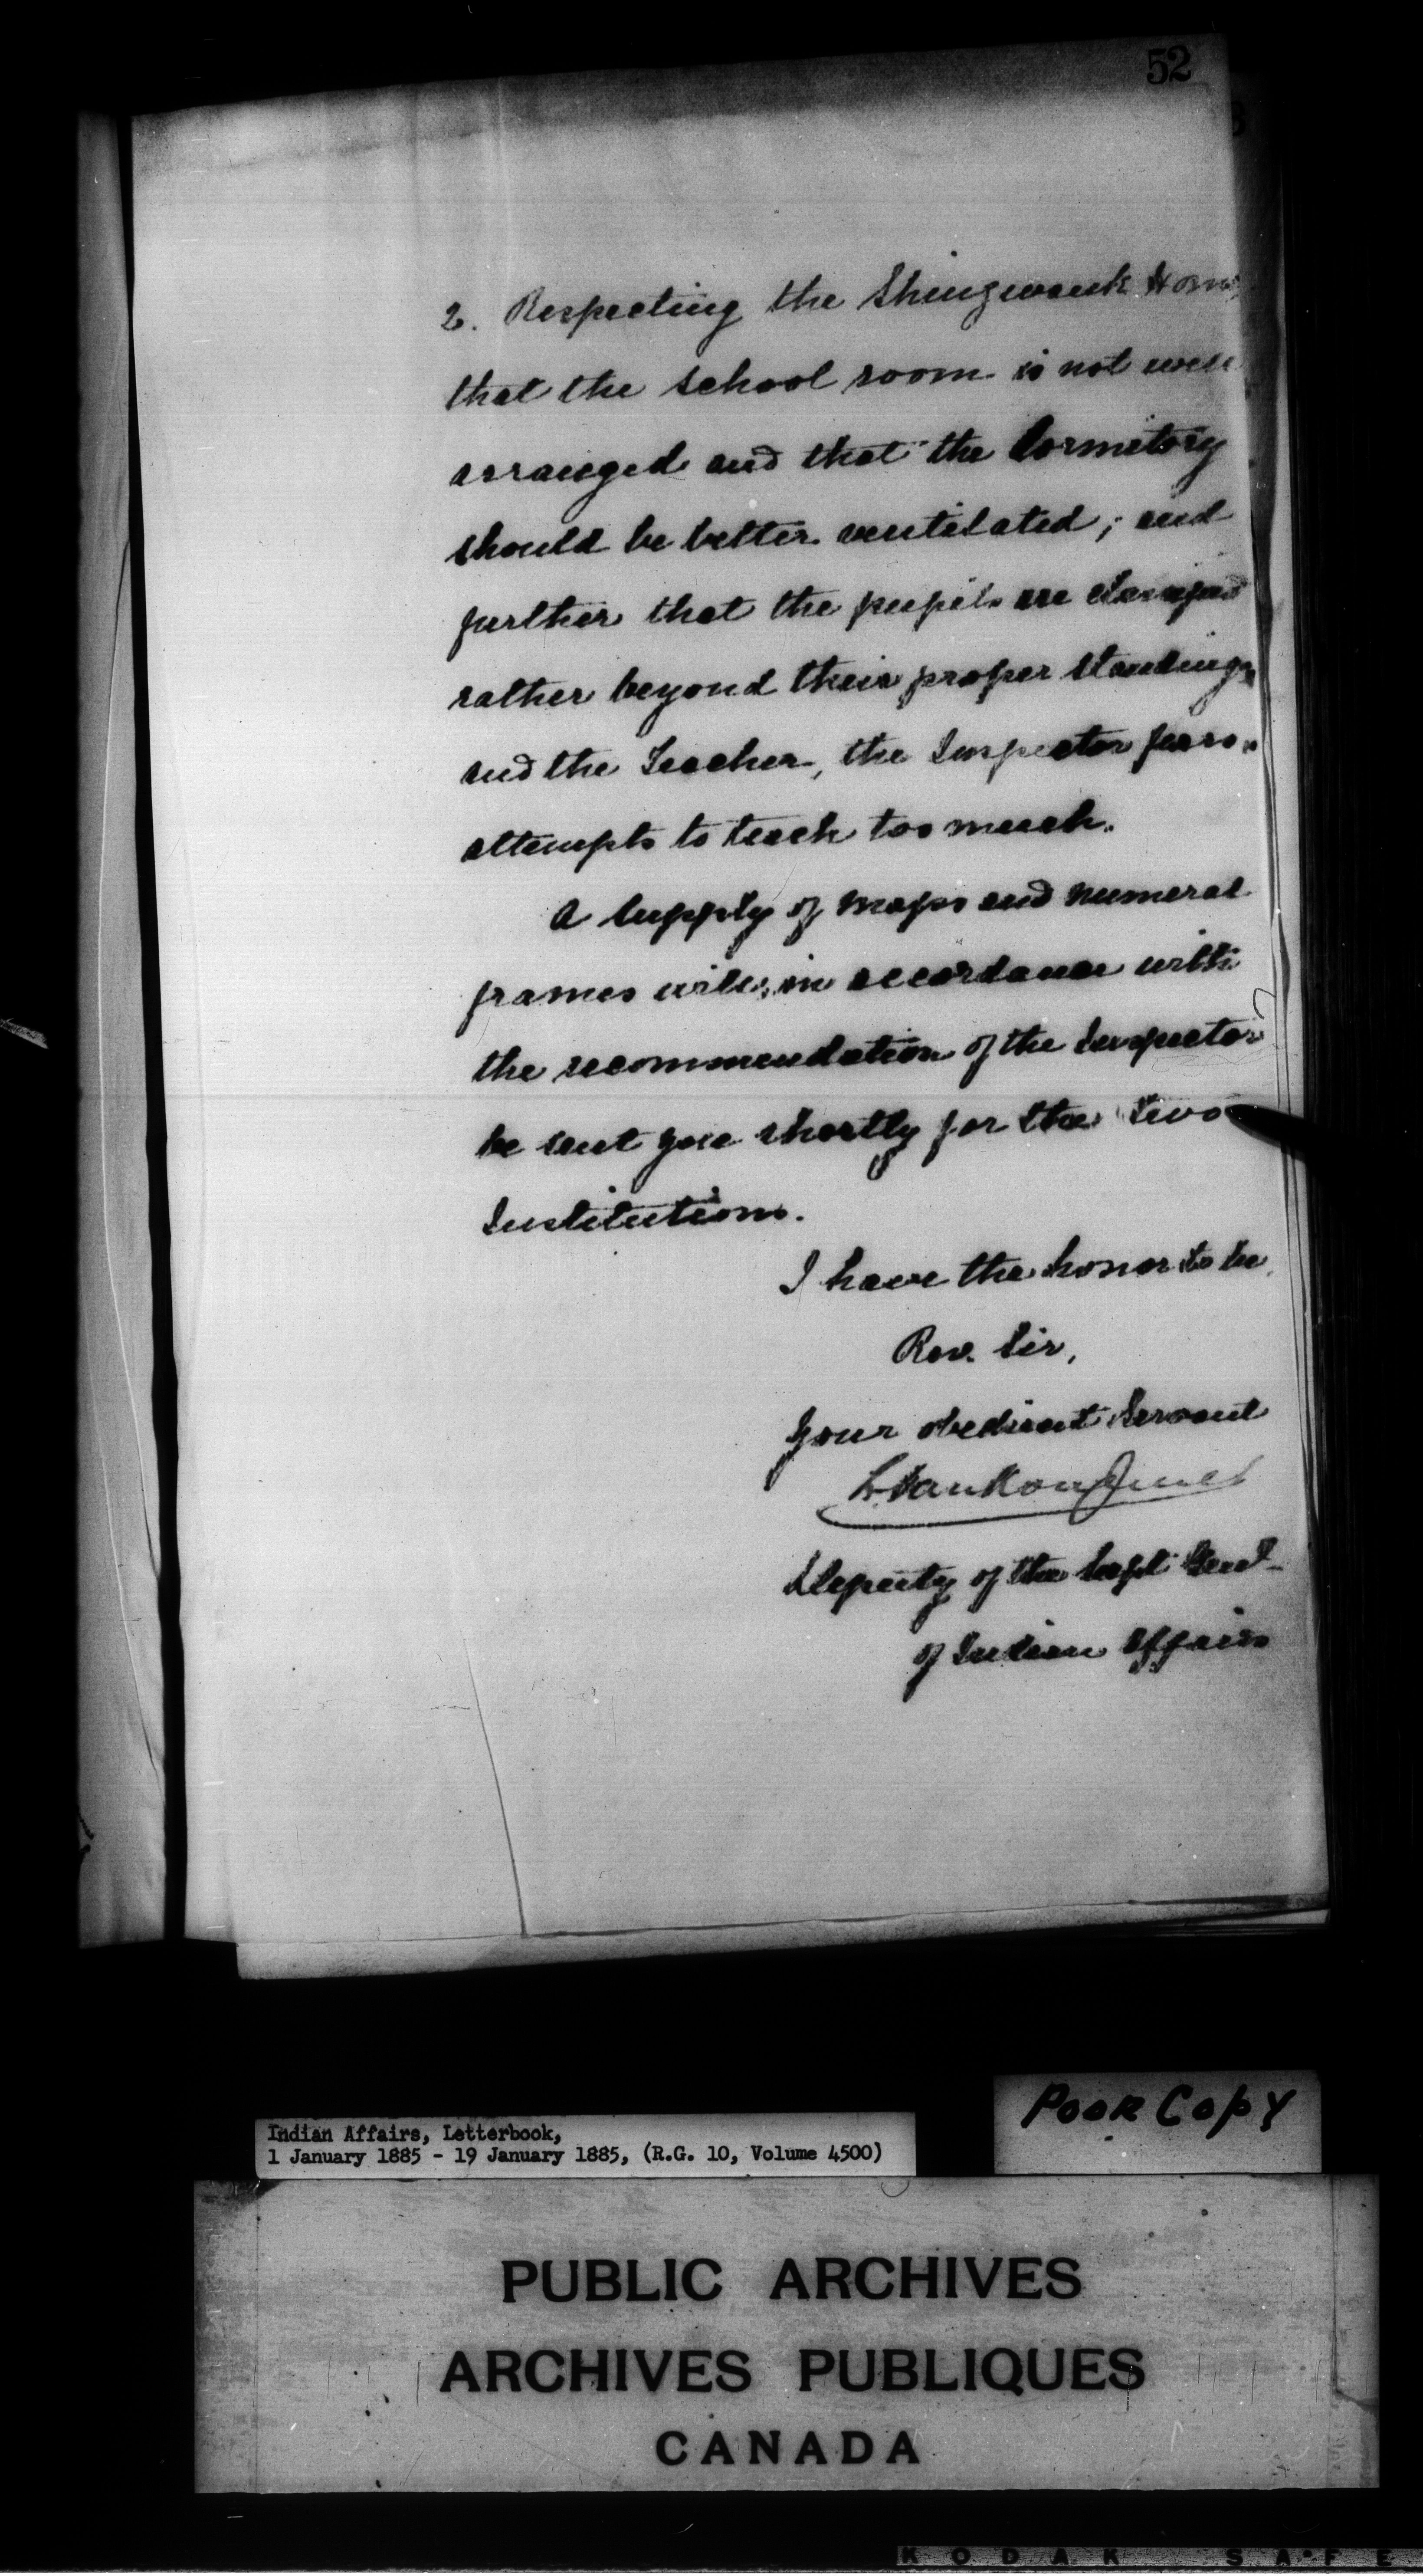 52
2. Respecting the Shingwauk Home
that the school room is not well
arranged and that the dormitory
should be better ventilated; and
further that the pupils are classified
rather beyond their proper standing,
and the Teacher, the Inspector fears,
attempts to teach too much.
A supply of maps and numeral
frames will, in accordance with
the recommendation of the Inspector
be sent you shortly for the two
Institutions.
I have the honor to be,
Rev. Sir,
Your obedient Servant
L. VanKoughnet
Deputy of the Supt. Genl.
of Indian Affairs
Poor Copy
Indian Affairs, Letterbook,
1 January 1885 - 19 January 1885, (R.G. 10, Volume 4500)
PUBLIC ARCHIVES
ARCHIVES PUBLIQUES
CANADA
KODAK SAFE